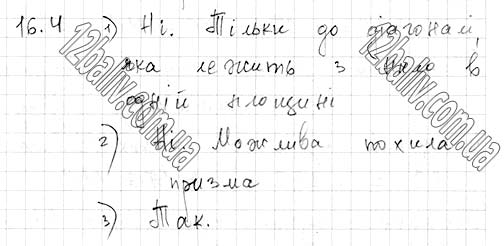 16.4 1) Ні. Тільки до діагоналі,
яка лежить з нею в
одній площині
2) Ні. Можлива похила
призма
3) Так.
12baliv.com.ua
12baliv.com.ua